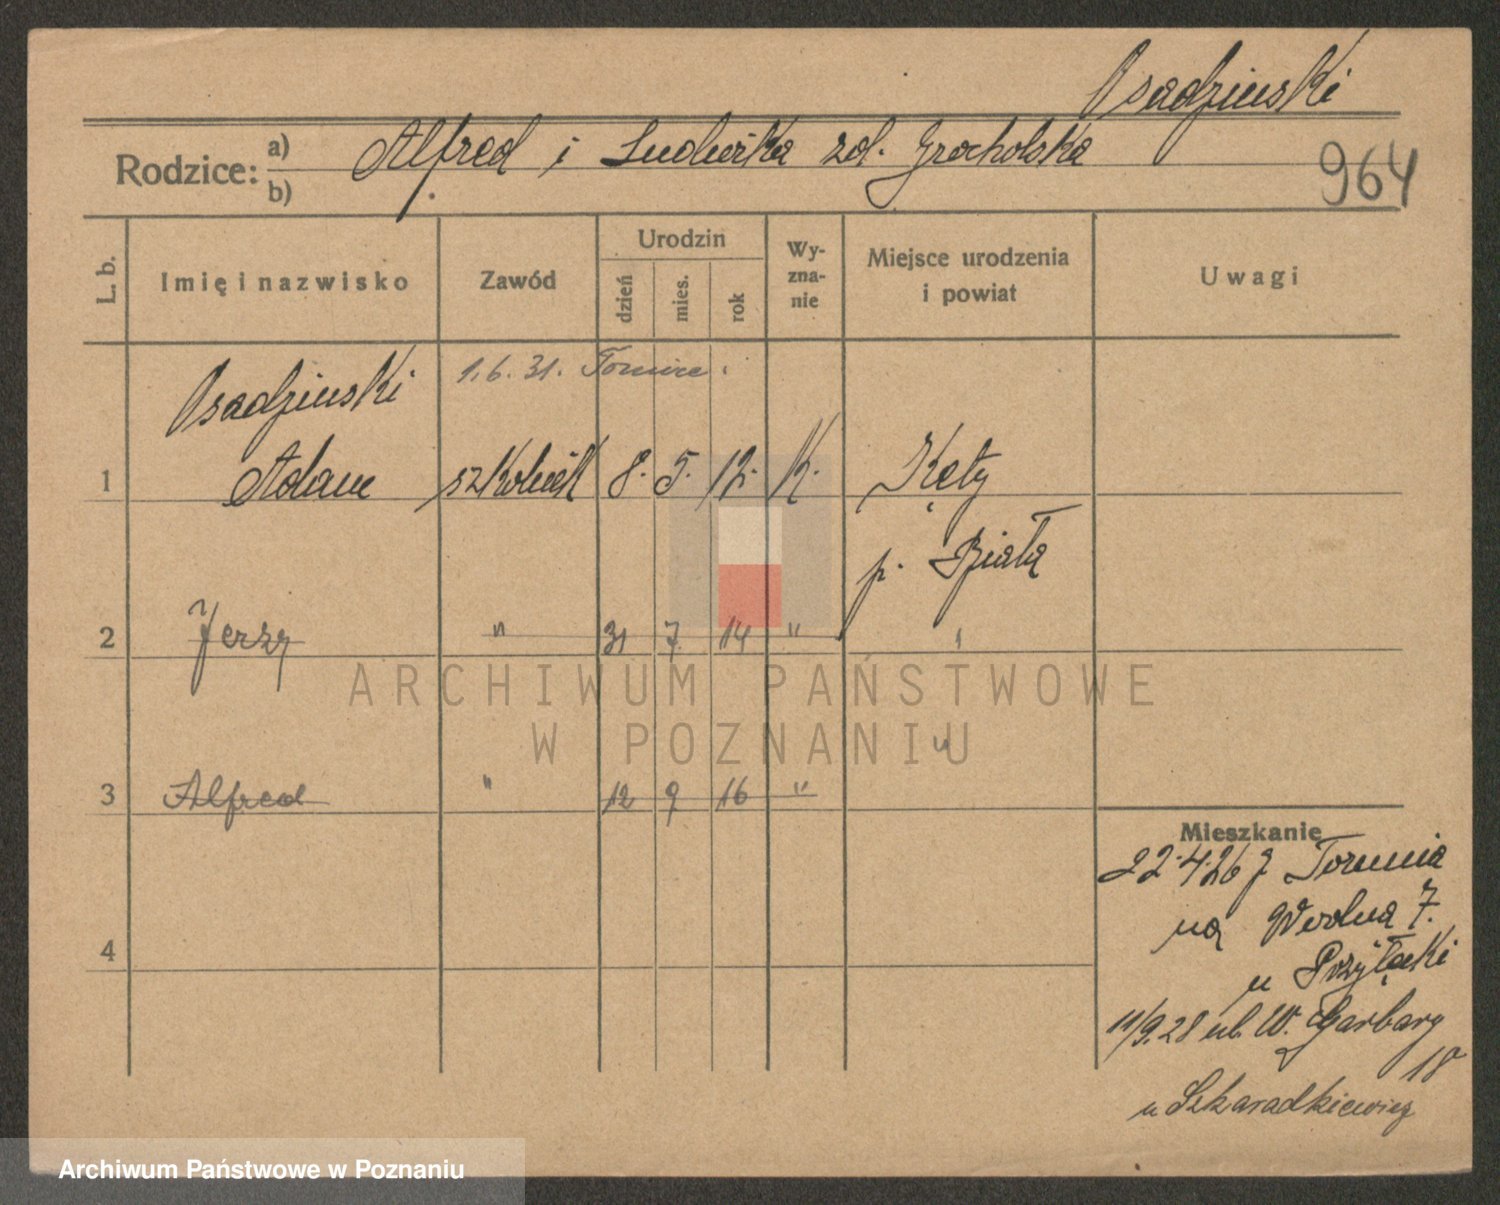 Osadziński
Rodzice: a) Alfred i Ludwika zd. Grocholska
b)
964
L. b.
Imię i nazwisko
Zawód
Urodzin
dzień
mies.
rok
Wy-
zna-
nie
Miejsce urodzenia
i powiat
Uwagi
1.6.31.
Osadziński
1 Adam szkolnik 8. 5. 12. K. Kęty
p. Biała
2 Jerzy " 31 7. 14 "
3 Alfred " 12 9 16 " "
4
Mieszkanie
22.4.26 z Torunia
na Wodna 7.
u
11/9.28 ul. W. Garbary
18
u Szkaradkiewicz
ARCHIWUM PAŃSTWOWE
W POZNANIU
Archiwum Państwowe w Poznaniu